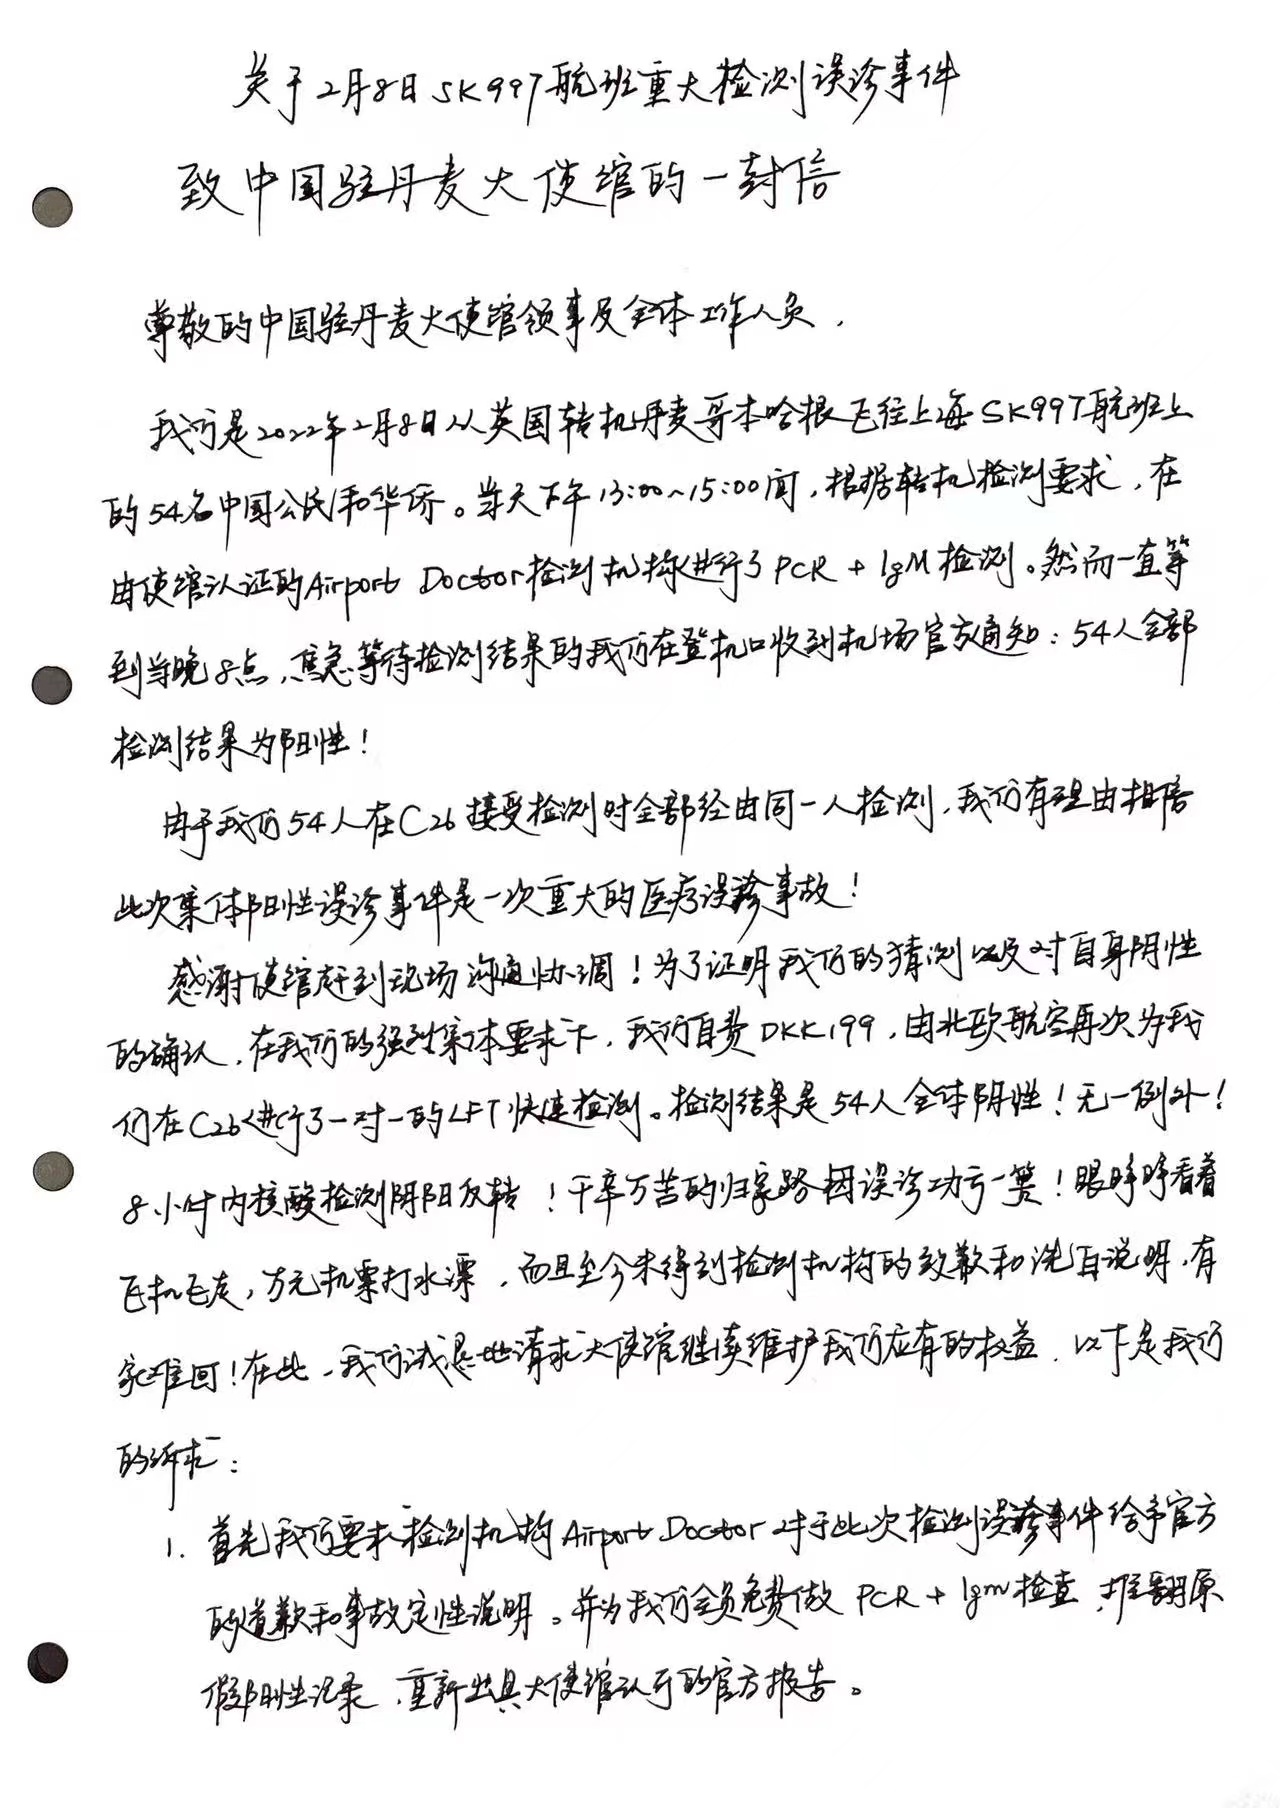 关于2月8日SK997航班重大检测误诊事件
致中国驻丹麦大使馆的一封信
尊敬的中国驻丹麦大使馆领事及全体工作人员，
我们是2022年2月8日从英国转机丹麦哥本哈根飞往上海SK997航班上
的54名中国公民和华侨。当天下午13:00~15:00间，根据转机检测要求，在
由使馆认证的Airport Doctor检测机构进行了PCR + IgM检测。然而一直等
到当晚8点，焦急等待检测结果的我们在登机口收到机场官方通知：54人全部
检测结果为阳性！
由于我们54人在C26接受检测时全部经由同一人检测，我们有理由相信
此次集体阳性误诊事件是一次重大的医疗误诊事故！
感谢使馆赶到现场沟通协调！为了证明我们的猜测以及对自身阴性
的确认，在我们的强烈集体要求下，我们自费DKK199，由北欧航空再次为我
们在C26进行了一对一的LFT快速检测。检测结果是54人全体阴性！无一例外！
8小时内核酸检测阴阳反转！千辛万苦的归家路因误诊功亏一篑！眼睁睁看着
飞机飞走，万元机票打水漂，而且至今未得到检测机构的致歉和洗白说明，有
家难回！在此，我们诚恳地请求大使馆继续维护我们应有的权益，以下是我们
的诉求：
1. 首先我们要求检测机构Airport Doctor对于此次检测误诊事件给予官方
的道歉和事故定性说明。并为我们全员免费做PCR + Igm检查，推翻原
假阳性记录，重新出具大使馆认可的官方报告。